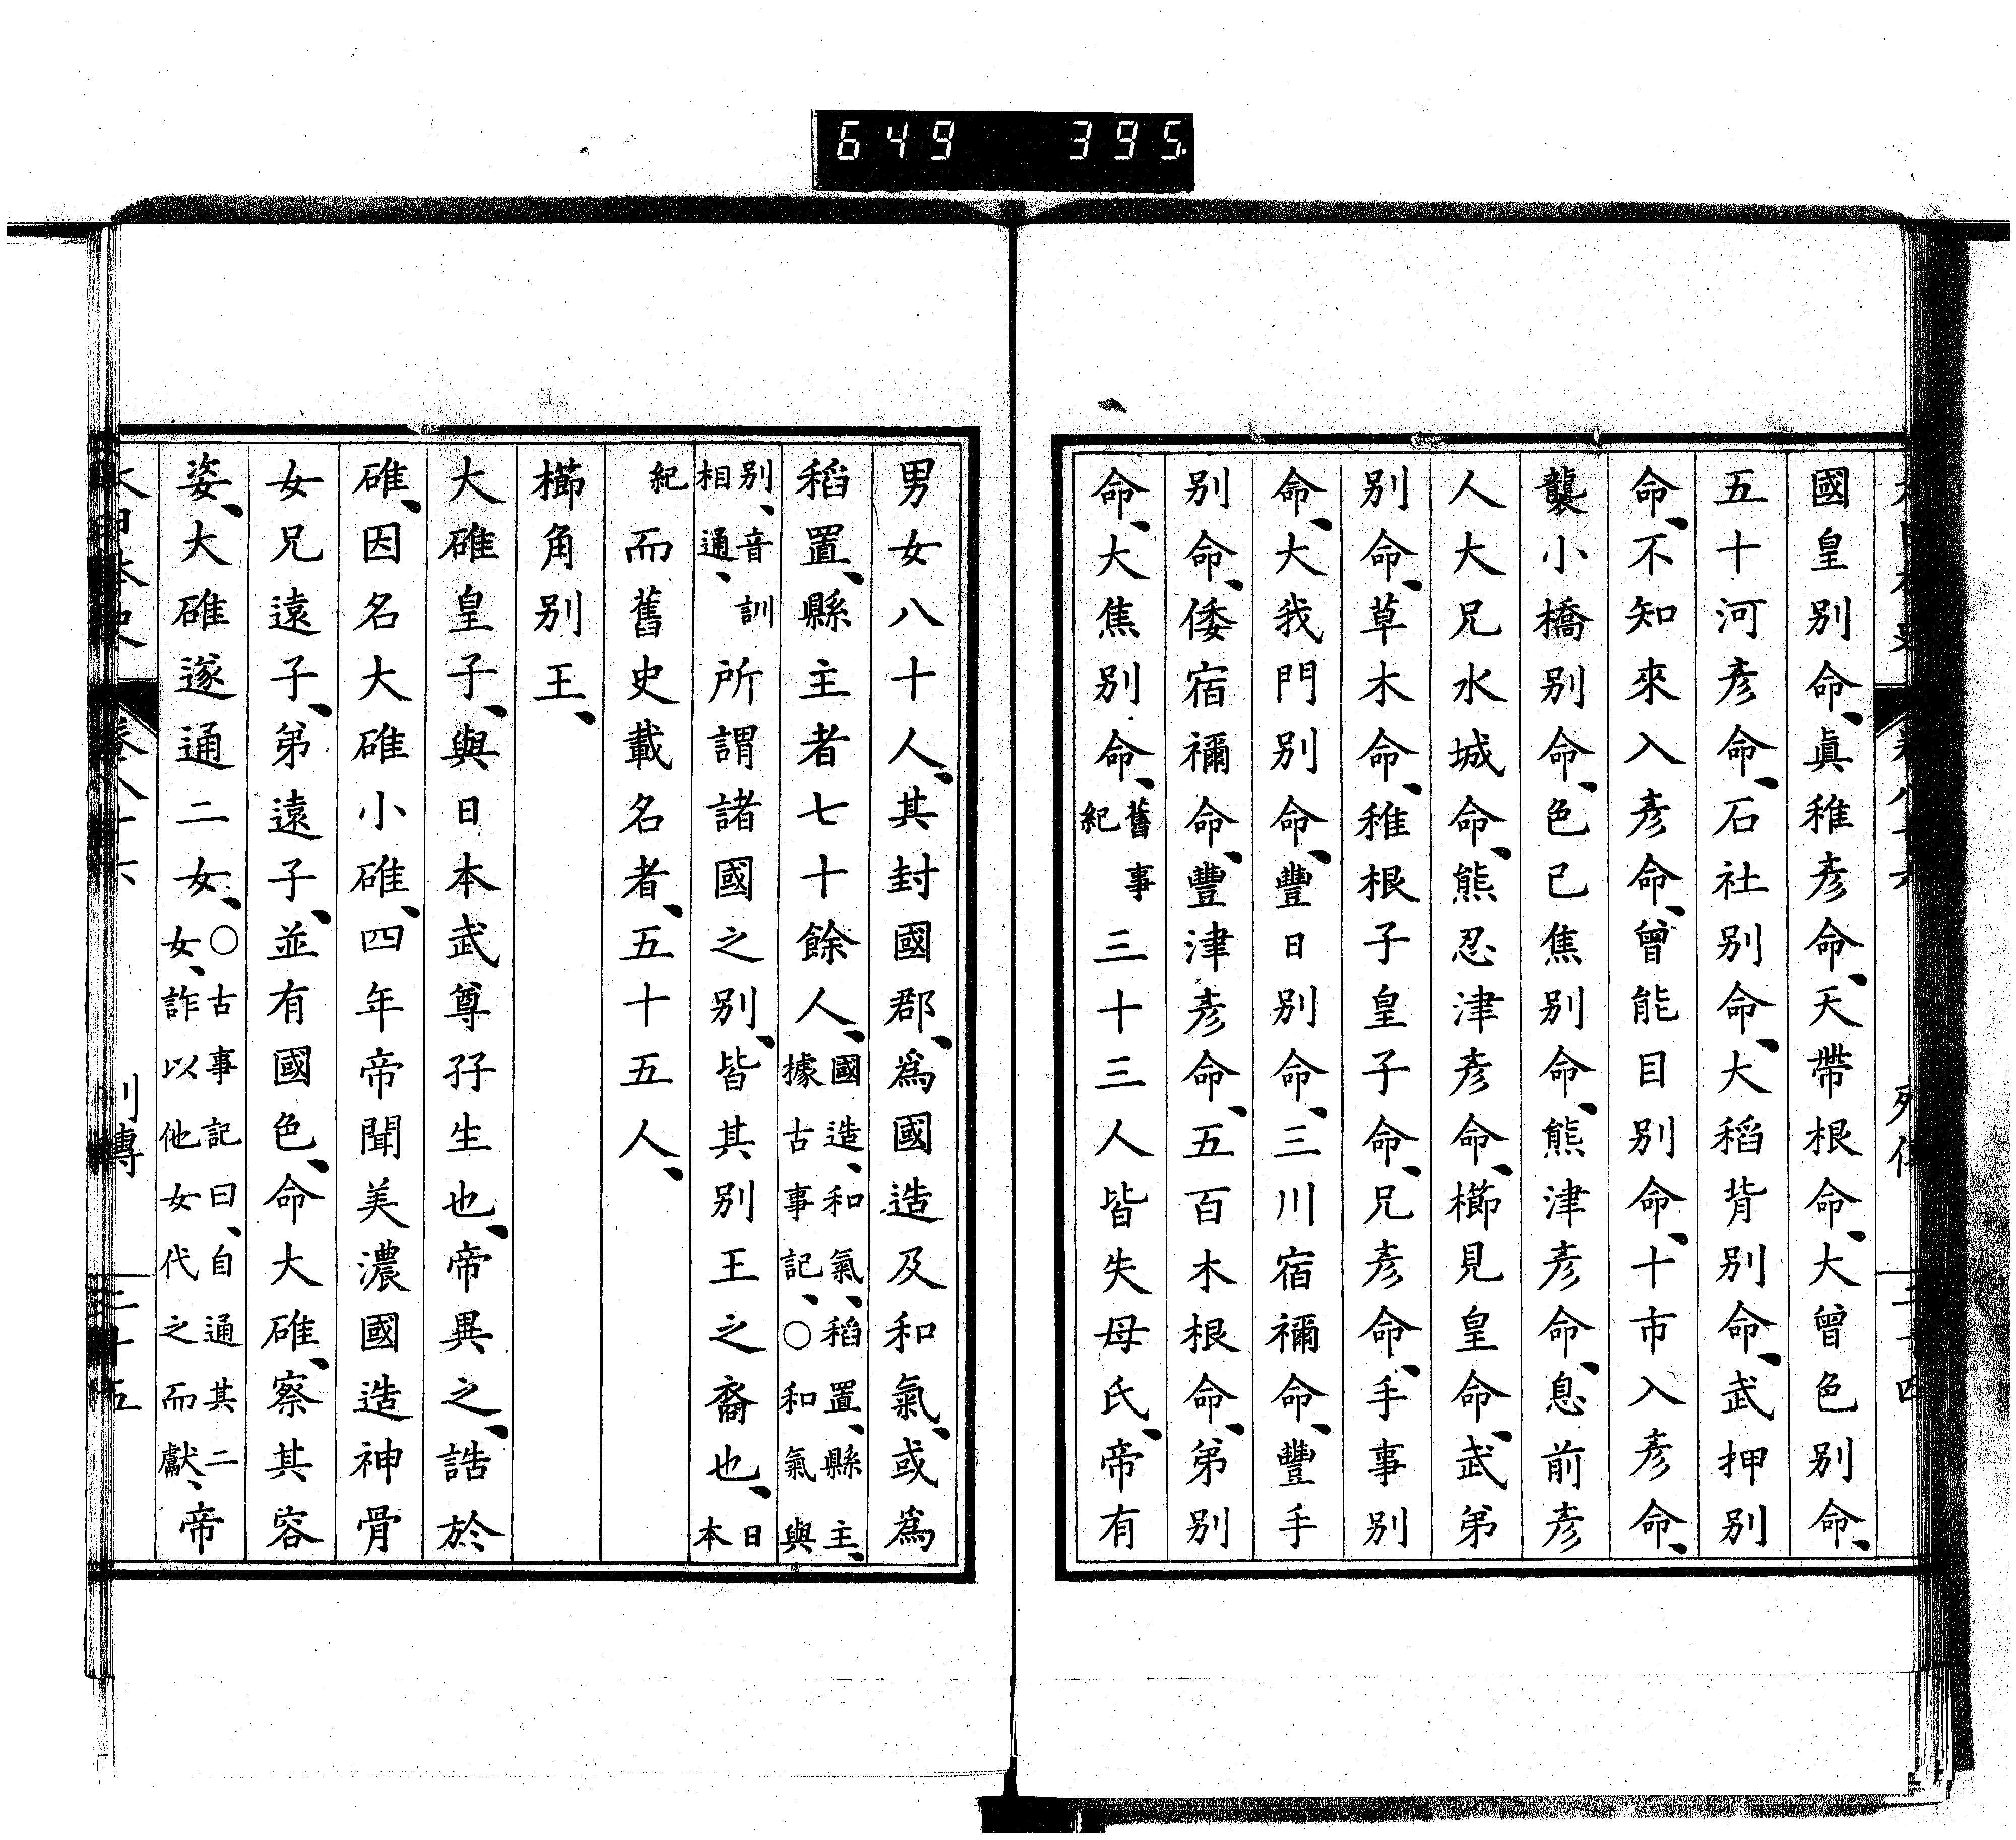 649 395
國皇別命、眞稚彥命、天帶根命、大曾色別命、
五十河彥命、石社別命、大稻背別命、武押別
命、不知來入彥命、曾能目別命、十市入彥命、
襲小橋別命、色己焦別命、熊津彥命、息前彥
人大兄水城命、熊忍津彥命、櫛見皇命、武弟
別命、草木命、稚根子皇子命、兄彥命、手事別
命、大我門別命、豐日別命、三川宿禰命、豐手
別命、倭宿禰命、豐津彥命、五百木根命、弟別
命、大焦別命、舊事紀三十三人皆失母氏、帝有
男女八十人、其封國郡、爲國造及和氣、或爲
稻置、縣主者七十餘人、國造、和氣、稻置、縣主、據古事記、○和氣與
別、音訓相通、所謂諸國之別、皆其別王之裔也、日本
紀而舊史載名者、五十五人、
櫛角別王、
大碓皇子、與日本武尊孖生也、帝異之、誥於
碓、因名大碓小碓、四年帝聞美濃國造神骨
女兄遠子、弟遠子、並有國色、命大碓、察其容
姿、大碓遂通二女、○古事記曰、自通其二女、詐以他女代之而獻、帝
大日本史 卷八十六 列傳 三十五